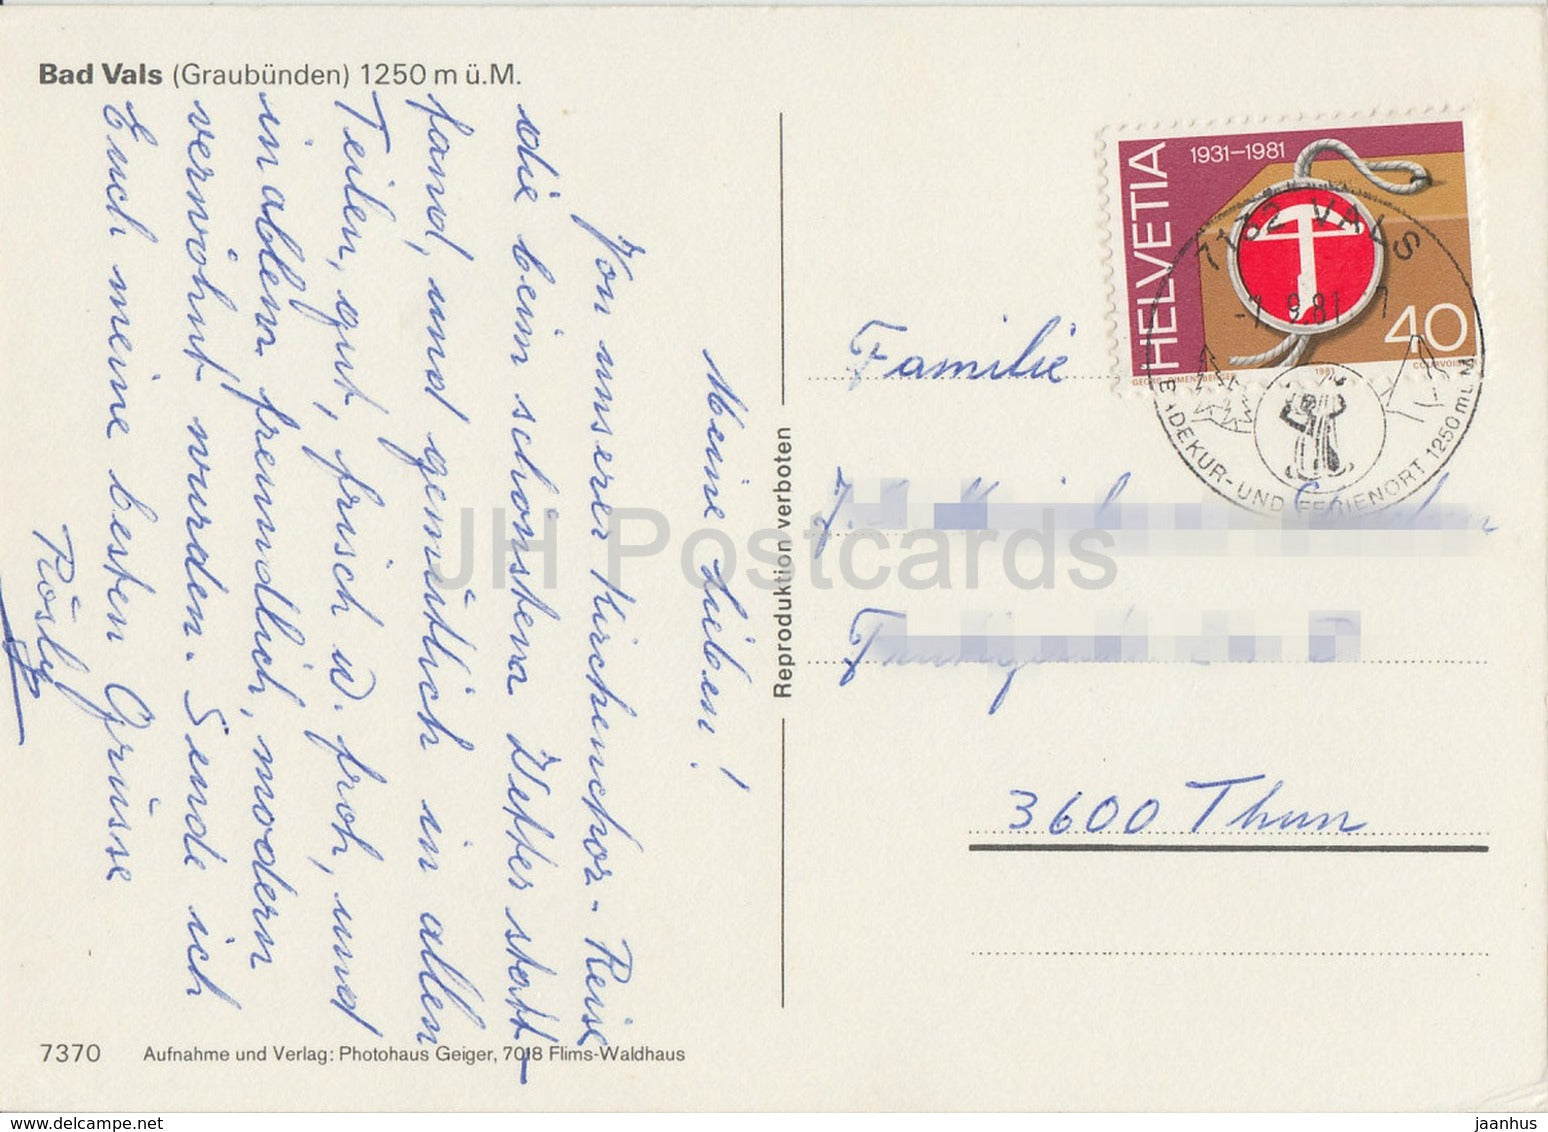 Bad Vals (Graubünden) 1250 m ü.M.
Meine Lieben!
Von unserer Kirchenchor-Reise
die beim schönsten Wetter statt-
fand, und gemütlich in allen
Teilen, gut, frisch u. froh, und
in allem freundlich, modern
verwöhnt wurden. Sende ich
Euch meine besten Grüsse
Rösly
7370 Aufnahme und Verlag: Photohaus Geiger, 7018 Flims-Waldhaus
Reproduktion verboten
HELVETIA
1931–1981
40
1981
7132 VALS
BADEKUR- UND FERIENORT 1250 m ü. M.
Familie
3600 Thun
JH Postcards
jaanhus